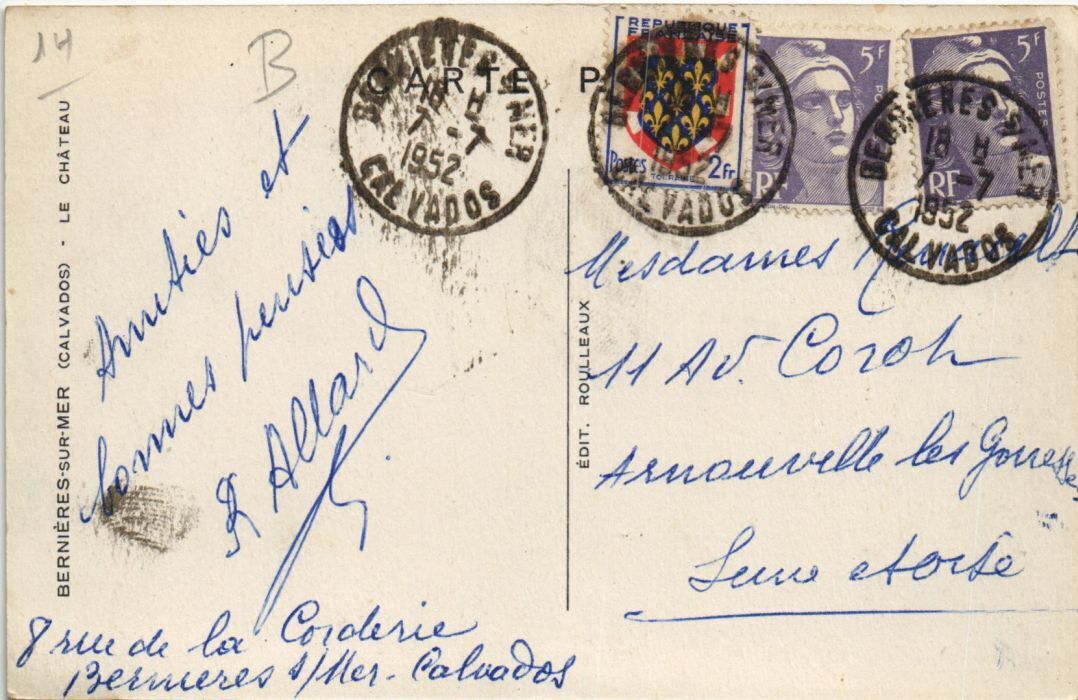 14
B
CARTE P
BERNIÈRES-SUR-MER (CALVADOS) - LE CHÂTEAU
ÉDIT. ROULLEAUX
REPUBLIQUE
FRANÇAISE
POSTES 2Fr
TOURAINE
5F
POSTES
RF
5F
POSTES
RF
BERNIERES S/MER
18 H
7-7
1952
CALVADOS
BERNIERES S/MER
1952
CALVADOS
BERNIERES S/MER
18 H
7-7
1952
CALVADOS
Amitiés et
bonnes pensées
R Allard
8 rue de la Corderie
Bernieres s/Mer. Calvados
Mesdames
11 Av. Corot
Arnouville les Gonesse
Seine et Oise